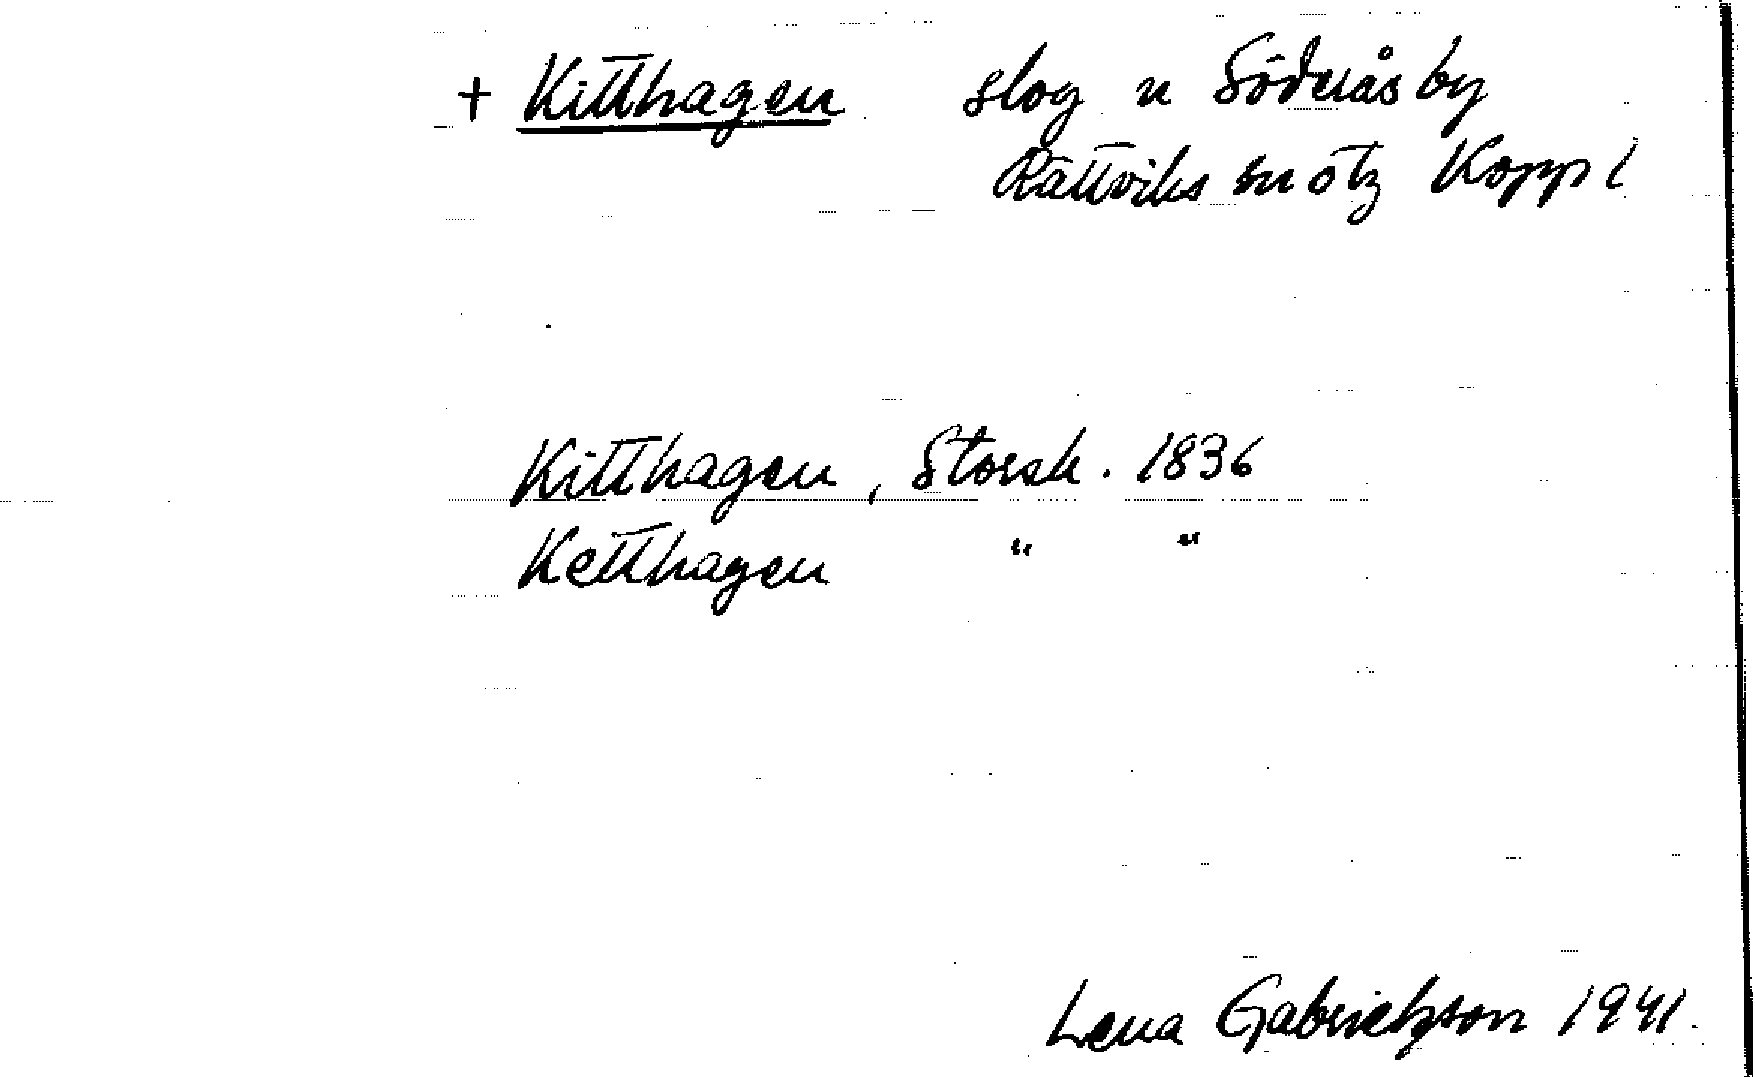 + Kitthagen slog u Söderås by
Rättviks sn o tg Kopp l
Kitthagen, Storsk. 1836
Ketthagen " "
Lena Gabrielsson 1941.